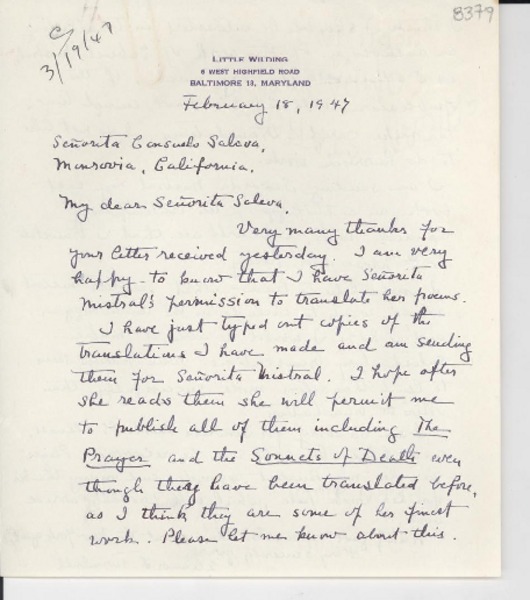 8379
C
3/19/47
LITTLE WILDING
6 WEST HIGHFIELD ROAD
BALTIMORE 18, MARYLAND
February 18, 1947
Señorita Consuelo Saleva,
Monrovia, California.
My dear Señorita Saleva,
Very many thanks for
your letter received yesterday. I am very
happy to know that I have Señorita
Mistral's permission to translate her poems.
I have just typed out copies of the
translations I have made and am sending
them for Señorita Mistral. I hope after
she reads them she will permit me
to publish all of them including The
Prayer and the Sonnets of Death even
though they have been translated before,
as I think they are some of her finest
work. Please let me know about this.